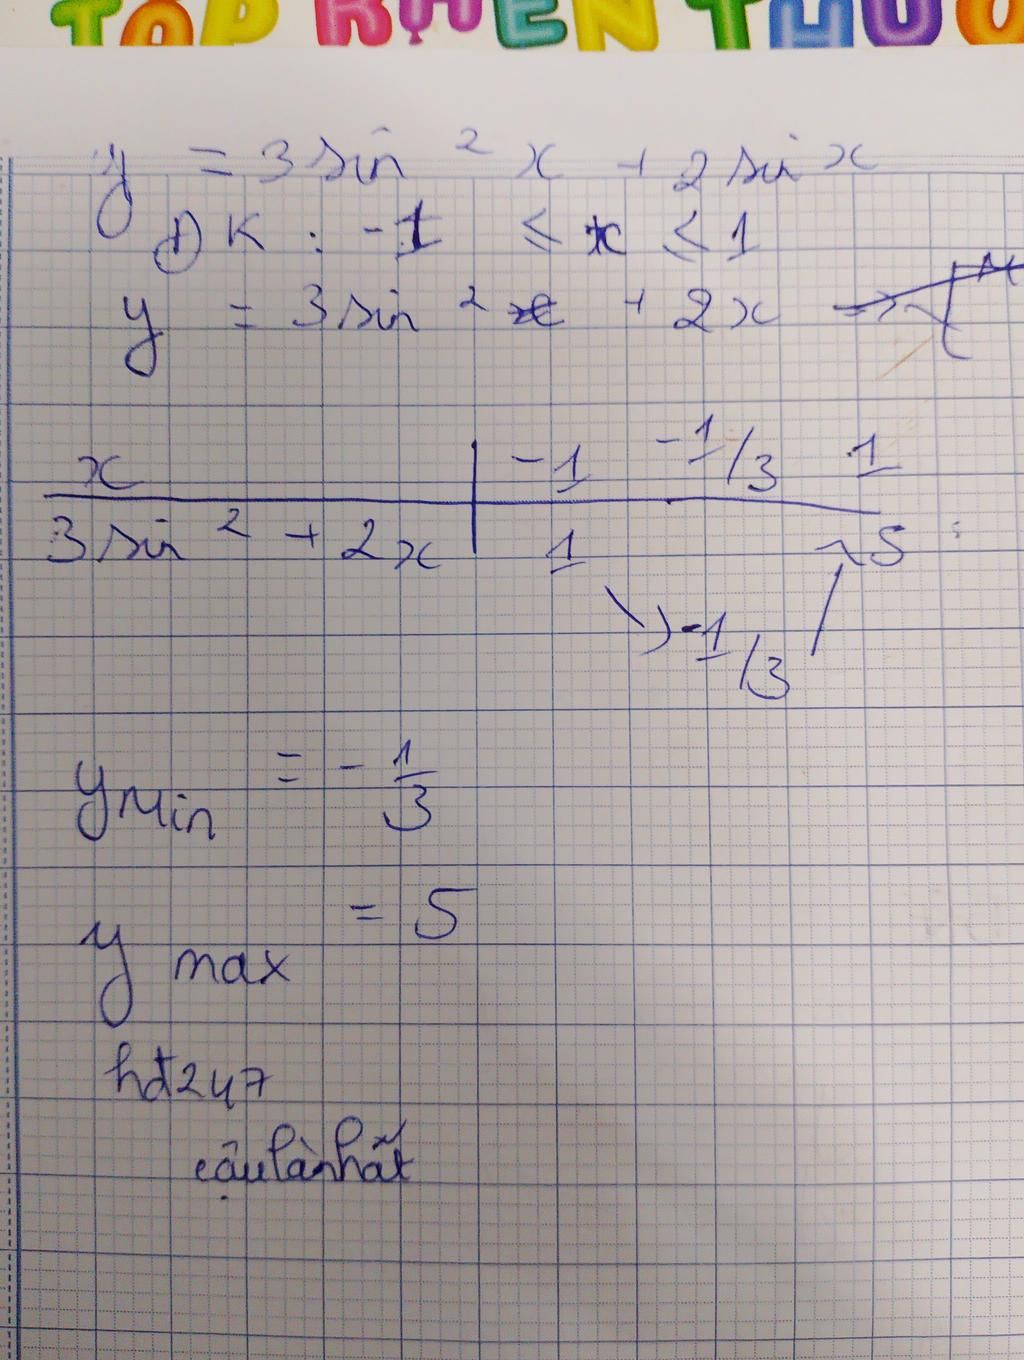 TẬP KHEN THƯỞ
y = 3 sin ² x + 2 sin x
ĐK : -1 ≤ x ≤ 1
y = 3 sin ² x + 2x
x | -1 -1/3 1
3 sin ² + 2x | 1 5
-1/3
y Min = - 1/3
y max = 5
hđ247
cậulànhất